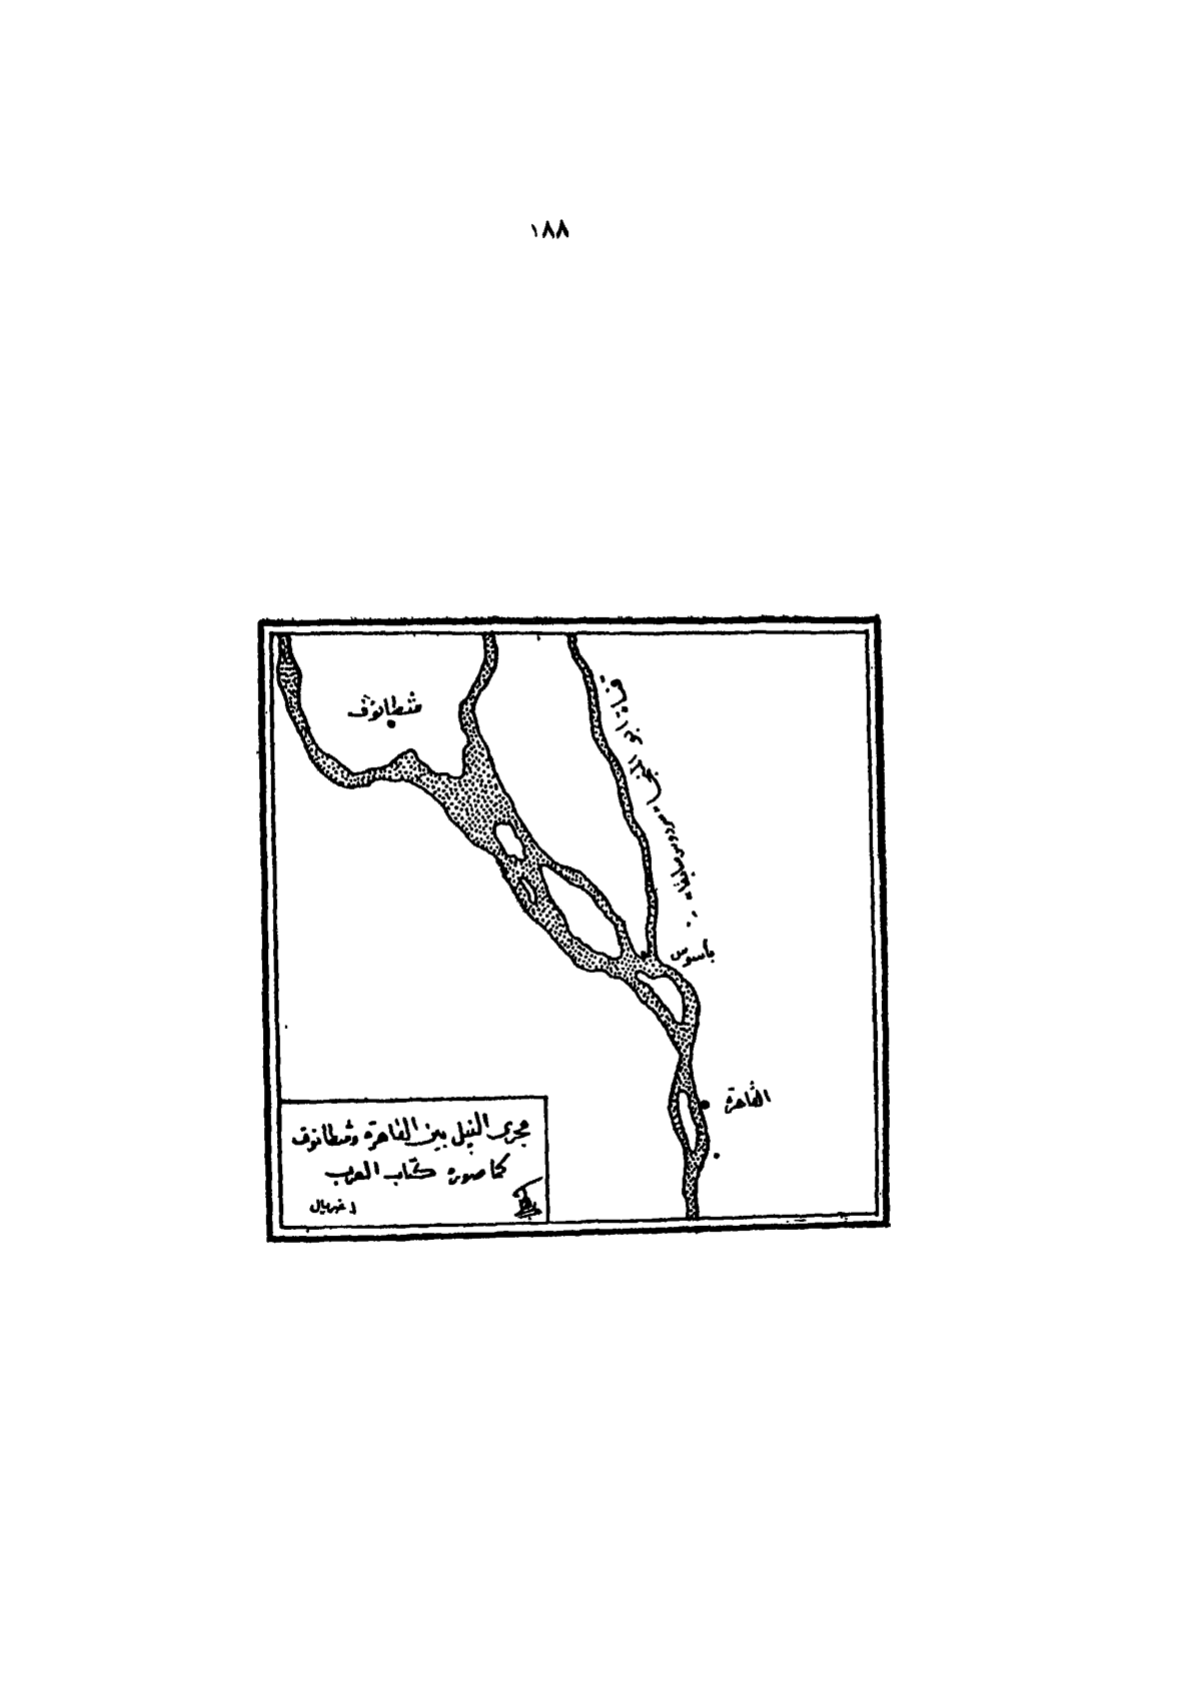 ١٨٨
شطانوف
قناة ابى المنجا
باسوس
القاهرة
مجرى النيل بين القاهرة وشطانوف
كما صوره كتاب العرب